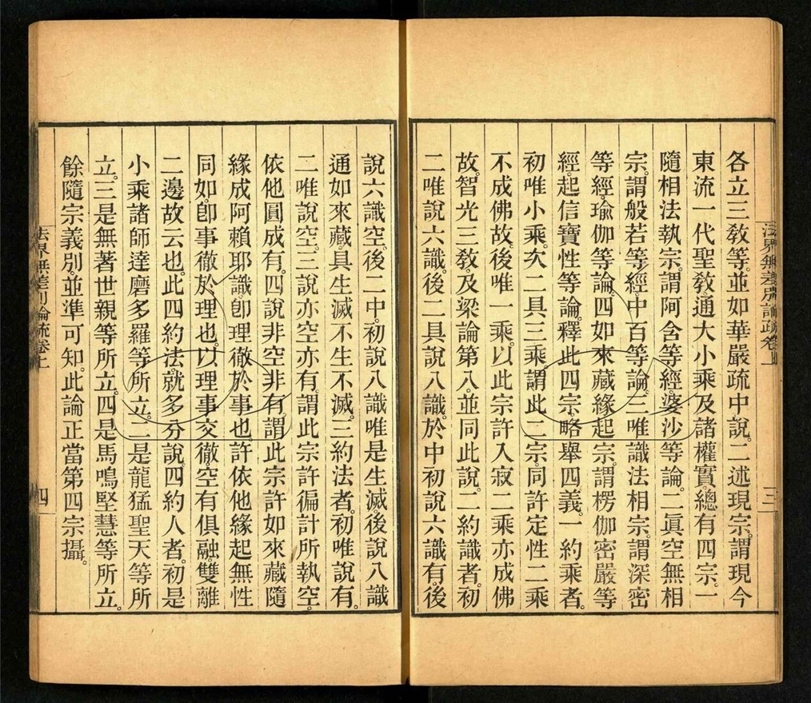 各立三敎等。並如華嚴疏中說。二述現宗。謂現今
東流一代聖敎。通大小乘及諸權實。總有四宗。一
隨相法執宗。謂阿含等經。婆沙等論。二眞空無相
宗。謂般若等經。中百等論。三唯識法相宗。謂深密
等經。瑜伽等論。四如來藏緣起宗。謂楞伽密嚴等
經。起信寶性等論。釋此四宗。略舉四義。一約乘者。
初唯小乘。次二具三乘。謂此二宗同許定性二乘
不成佛故。後唯一乘。以此宗許入寂二乘亦成佛
故。智光三敎。及梁論第八。並同此說。二約識者。初
二唯說六識。後二具說八識。於中初說六識有。後
法界無差別論疏卷上
三
說六識空。後二中。初說八識唯是生滅。後說八識
通如來藏。具生滅不生不滅。三約法者。初唯說有。
二唯說空。三說亦空亦有。謂此宗許徧計所執空。
依他圓成有。四說非空非有。謂此宗許如來藏隨
緣成阿賴耶識。卽理徹於事也。許依他緣起無性
同如。卽事徹於理也。以理事交徹。空有俱融。雙離
二邊故云也。此四約法就多分說。四約人者。初是
小乘諸師達磨多羅等所立。二是龍猛聖天等所
立。三是無著世親等所立。四是馬鳴堅慧等所立。
餘隨宗義別。並準可知。此論正當第四宗攝。
法界無差別論疏卷上
四